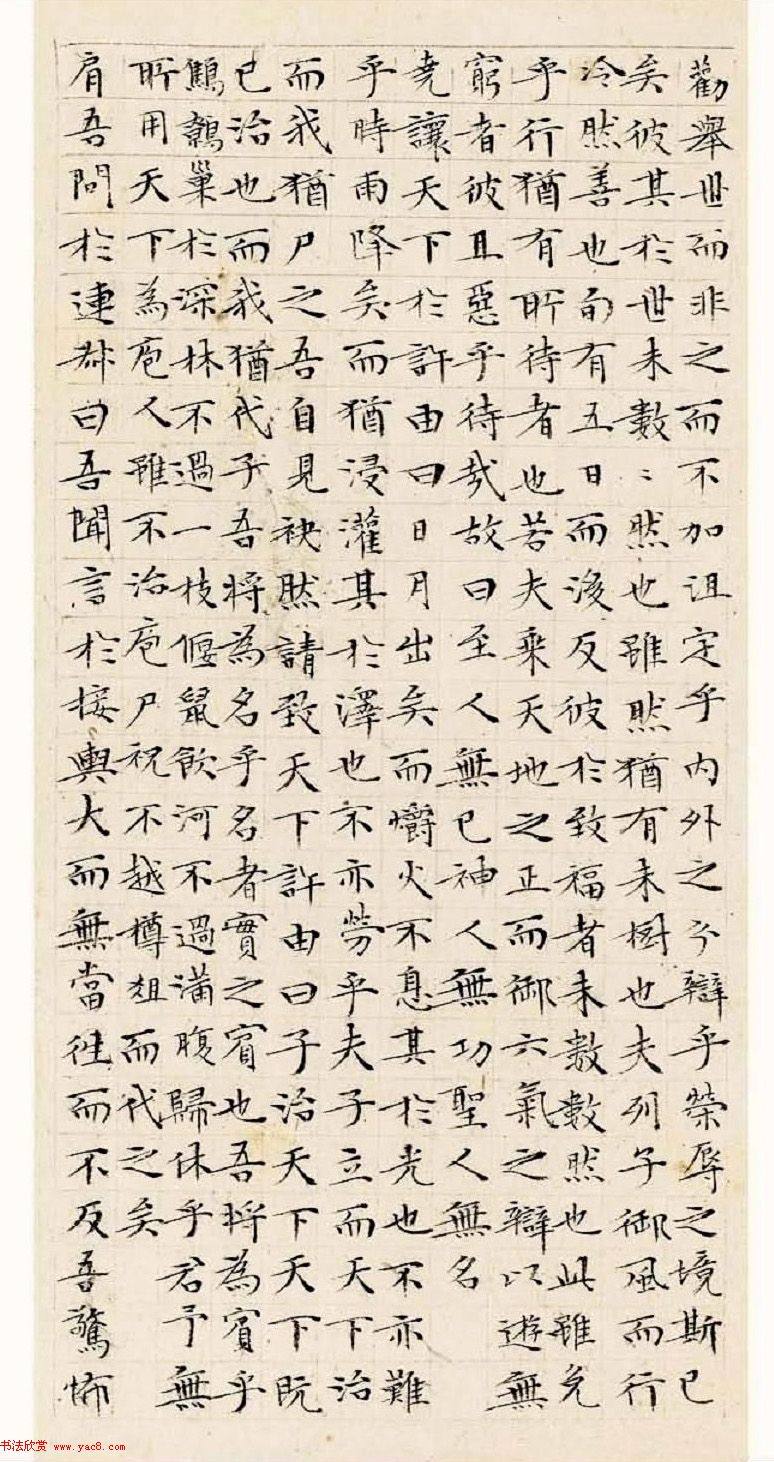 勸舉世而非之而不加沮定乎内外之分辯乎榮辱之境斯已
矣彼其於世未數〻然也雖然猶有未樹也夫列子御風而行
冷然善也旬有五日而後反彼於致福者未數數然也此雖免
乎行猶有所待者也若夫乘天地之正而御六氣之辯以遊無
窮者彼且惡乎待哉故曰至人無已神人無功聖人無名
堯讓天下於許由曰日月出矣而爝火不息其於光也不亦難
乎時雨降矣而猶浸灌其於澤也不亦勞乎夫子立而天下治
而我猶尸之吾自見缺然請致天下許由曰子治天下天下既
已治也而我猶代子吾將為名乎名者實之賓也吾將為賓乎
鷦鷯巢於深林不過一枝偃鼠飲河不過滿腹歸休乎君予無
所用天下為庖人雖不治庖尸祝不越樽俎而代之矣
肩吾問於連叔曰吾聞言於接輿大而無當往而不反吾驚怖
书法欣赏 www.yac8.com